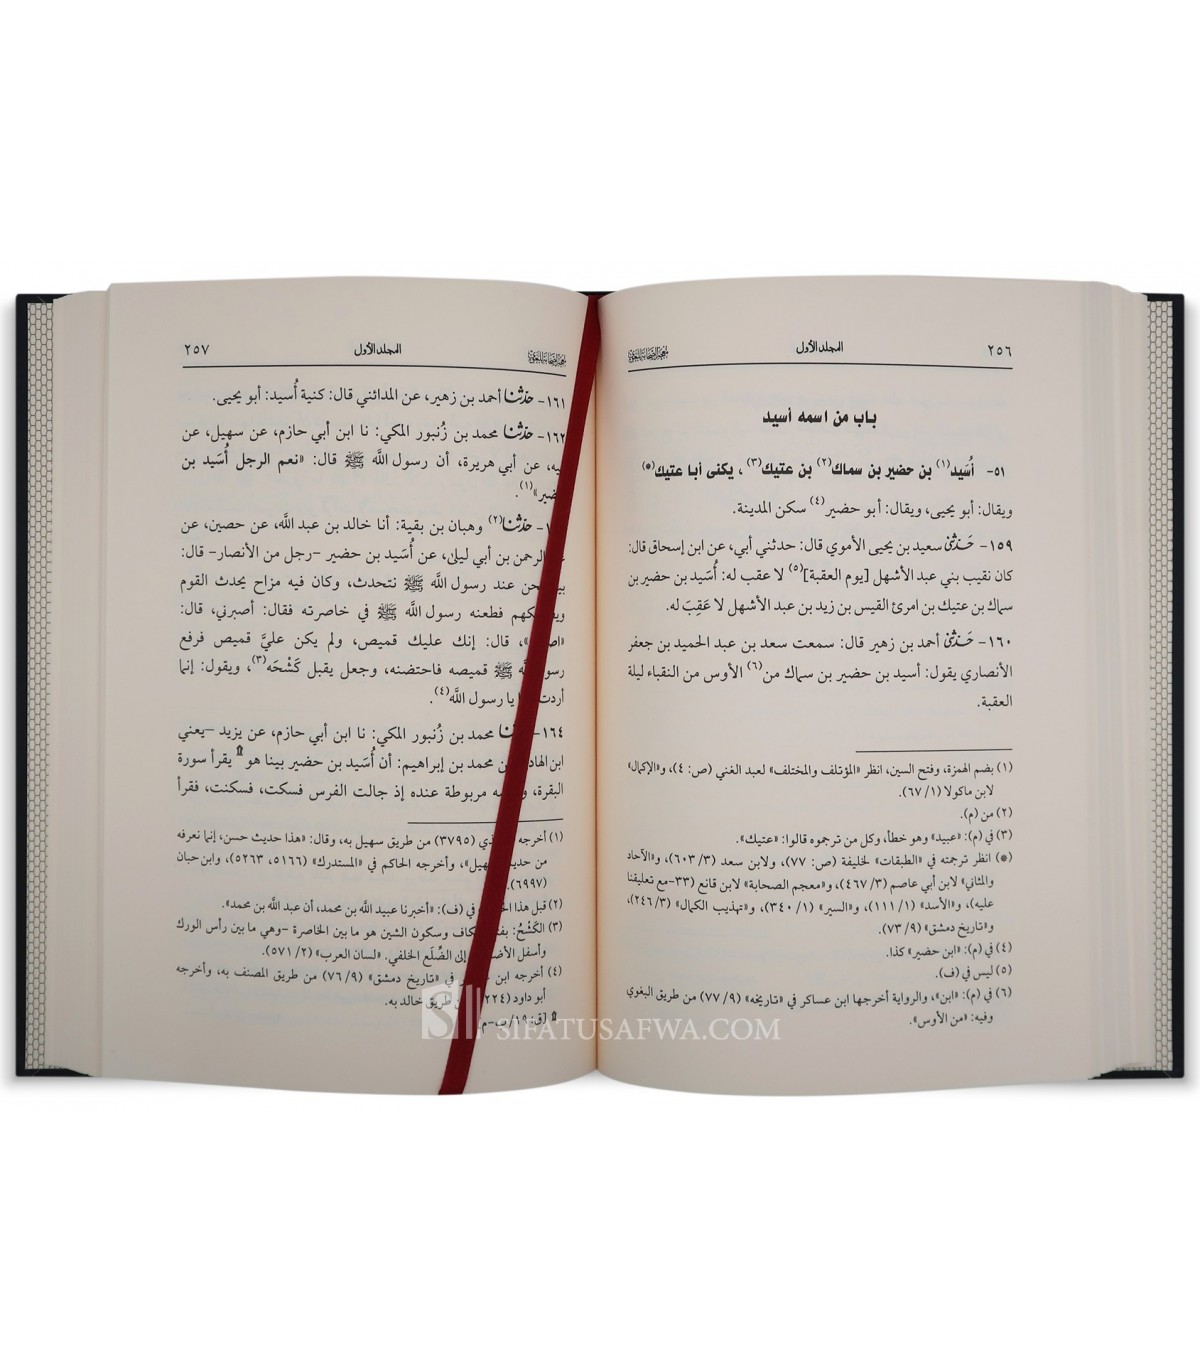 ٢٥٦
المجلد الأول
باب من اسمه أسيد
٥١- أُسَيد(١) بن حضير بن سماك(٢) بن عتيك(٣)، يكنى أبا عتيك(*)
ويقال: أبو يحيى، ويقال: أبو حضير(٤) سكن المدينة.
١٥٩- حَدثني سعيد بن يحيى الأموي قال: حدثني أبي، عن ابن إسحاق قال:
كان نقيب بني عبد الأشهل [يوم العقبة](٥) لا عقب له: أُسَيد بن حضير بن
سماك بن عتيك بن امرئ القيس بن زيد بن عبد الأشهل لا عَقِبَ له.
١٦٠- حَدثني أحمد بن زهير قال: سمعت سعد بن عبد الحميد بن جعفر
الأنصاري يقول: أسيد بن حضير بن سماك من(٦) الأوس من النقباء ليلة
العقبة.
(١) بضم الهمزة، وفتح السين، انظر «المؤتلف والمختلف» لعبد الغني (ص: ٤)، و«الإكمال»
لابن ماكولا (١/ ٦٧).
(٢) من (م).
(٣) في (م): «عبيد» وهو خطأ، وكل من ترجموه قالوا: «عتيك».
(*) انظر ترجمته في «الطبقات» لخليفة (ص: ٧٧)، ولابن سعد (٣/ ٦٠٣)، و«الآحاد
والمثاني» لابن أبي عاصم (٣/ ٤٦٧)، و«معجم الصحابة» لابن قانع (٣٣-مع تعليقنا
عليه)، و«الأسد» (١/ ١١١)، و«السير» (١/ ٣٤٠)، و«تهذيب الكمال» (٣/ ٢٤٦)،
و«تاريخ دمشق» (٩/ ٧٣).
(٤) في (م): «ابن حضير» كذا.
(٥) ليس في (ف).
(٦) في (م): «ابن»، والرواية أخرجها ابن عساكر في «تاريخه» (٩/ ٧٧) من طريق البغوي
وفيه: «من الأوس».
المجلد الأول
٢٥٧
١٦١- حدثنا أحمد بن زهير، عن المدائني قال: كنية أُسيد: أبو يحيى.
١٦٢- حدثنا محمد بن زُنبور المكي: نا ابن أبي حازم، عن سهيل، عن
عن أبي هريرة، أن رسول الله ﷺ قال: «نعم الرجل أُسَيد بن
(١).
حدثنا(٢) وهبان بن بقية: أنا خالد بن عبد الله، عن حصين، عن
الرحمن بن أبي ليلى، عن أُسَيد بن حضير -رجل من الأنصار- قال:
نحن عند رسول الله ﷺ نتحدث، وكان فيه مزاح يحدث القوم
فطعنه رسول الله ﷺ في خاصرته فقال: أصبرني، قال:
قال: إنك عليك قميص، ولم يكن عليَّ قميص فرفع
ﷺ قميصه فاحتضنه، وجعل يقبل كَشْحَه(٣)، ويقول: إنما
يا رسول الله(٤).
١٦٤- محمد بن زُنبور المكي: نا ابن أبي حازم، عن يزيد -يعني
ابن الهاد- عن محمد بن إبراهيم: أن أُسَيد بن حضير بينا هو يقرأ سورة
البقرة، مربوطة عنده إذ جالت الفرس فسكت، فسكنت، فقرأ
(١) أخرجه (٣٧٩٥) من طريق سهيل به، وقال: «هذا حديث حسن، إنما نعرفه
من وأخرجه الحاكم في «المستدرك» (٥١٦٦، ٥٢٦٣)، وابن حبان
(٦٩٩٧).
(٢) قبل هذا في (ف): «أخبرنا عبيد الله بن محمد، أن عبد الله بن محمد».
(٣) الكَشْحُ: وسكون الشين هو ما بين الخاصرة -وهي ما بين رأس الورك
وأسفل إلى الضِّلَع الخلفي. «لسان العرب» (٢/ ٥٧١).
(٤) أخرجه ابن في «تاريخ دمشق» (٩/ ٧٦) من طريق المصنف به، وأخرجه
أبو داود طريق خالد به.
[ق: ١٩/
SIFATUSAFWA.COM